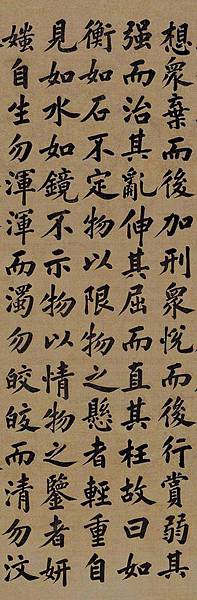 想衆棄而後加刑衆悅而後行賞弱其
强而治其亂伸其屈而直其枉故曰如
衡如石不定物以限物之懸者輕重自
見如水如鏡不示物以情物之鑒者妍
媸自生勿渾渾而濁勿皎皎而清勿汶